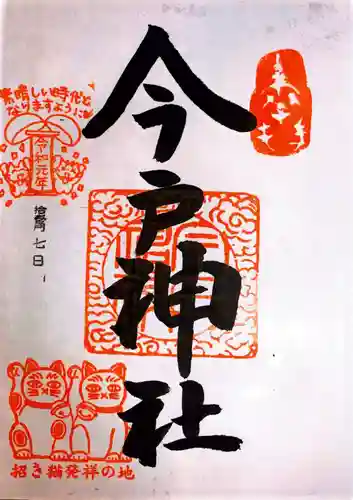 今戸神社
素晴しい時代と
なりますように
令和元年
七日
招き猫発祥の地